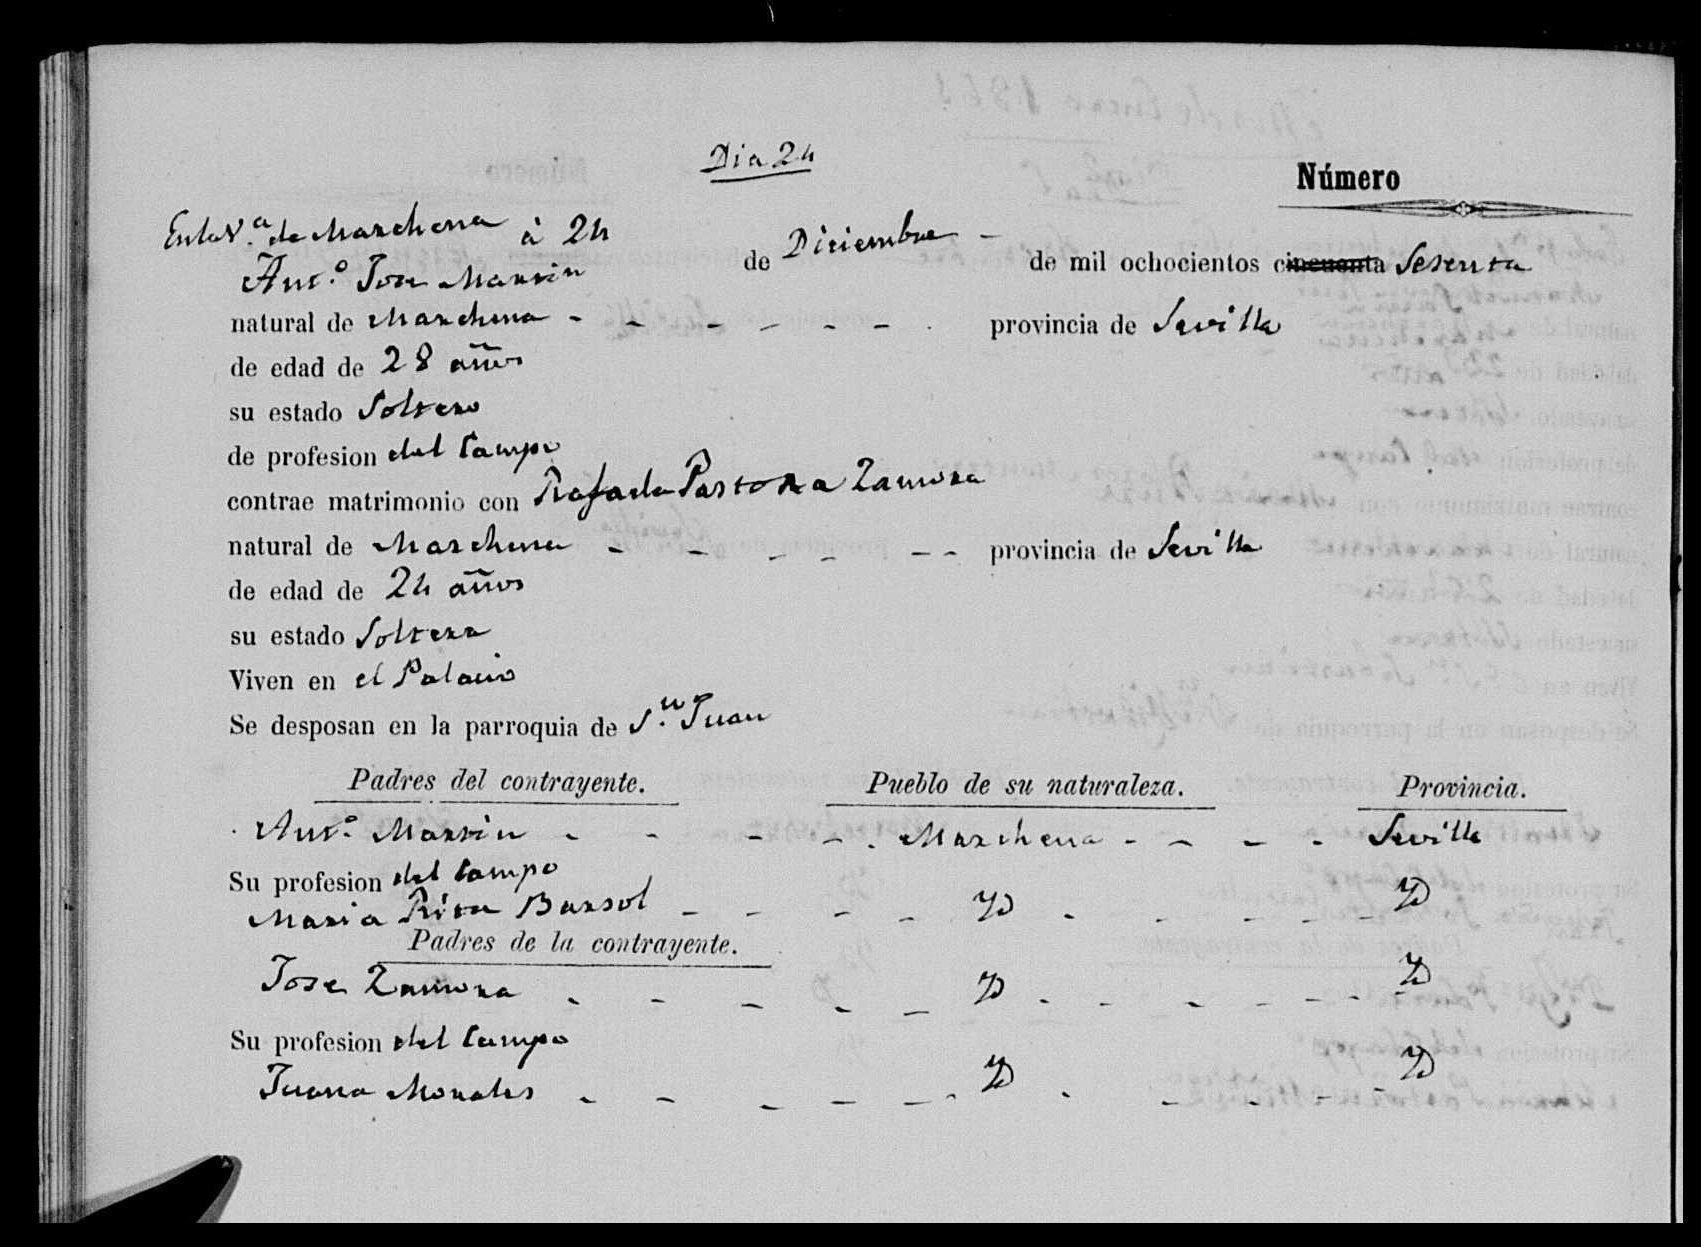 Dia 24
Número
En la V.ª de Marchena à 24 de Diciembre de mil ochocientos cincuenta Sesenta
Ant.º Jose Martin
natural de Marchena - - - - - - provincia de Sevilla
de edad de 28 años
su estado Soltero
de profesion del Campo
contrae matrimonio con Rafaela Pastora Zamora
natural de Marchena - - - - - - provincia de Sevilla
de edad de 24 años
su estado Soltera
Viven en el Palacio
Se desposan en la parroquia de S.n Juan
Padres del contrayente. Pueblo de su naturaleza. Provincia.
Ant.º Martin - - - - Marchena - - - - Sevilla
Su profesion del Campo
Maria Rita - - - - YD - - - - - YD
Padres de la contrayente.
Jose Zamora - - - - - YD - - - - - YD
Su profesion del Campo
Juana Morales - - - - - - YD - - - - - YD